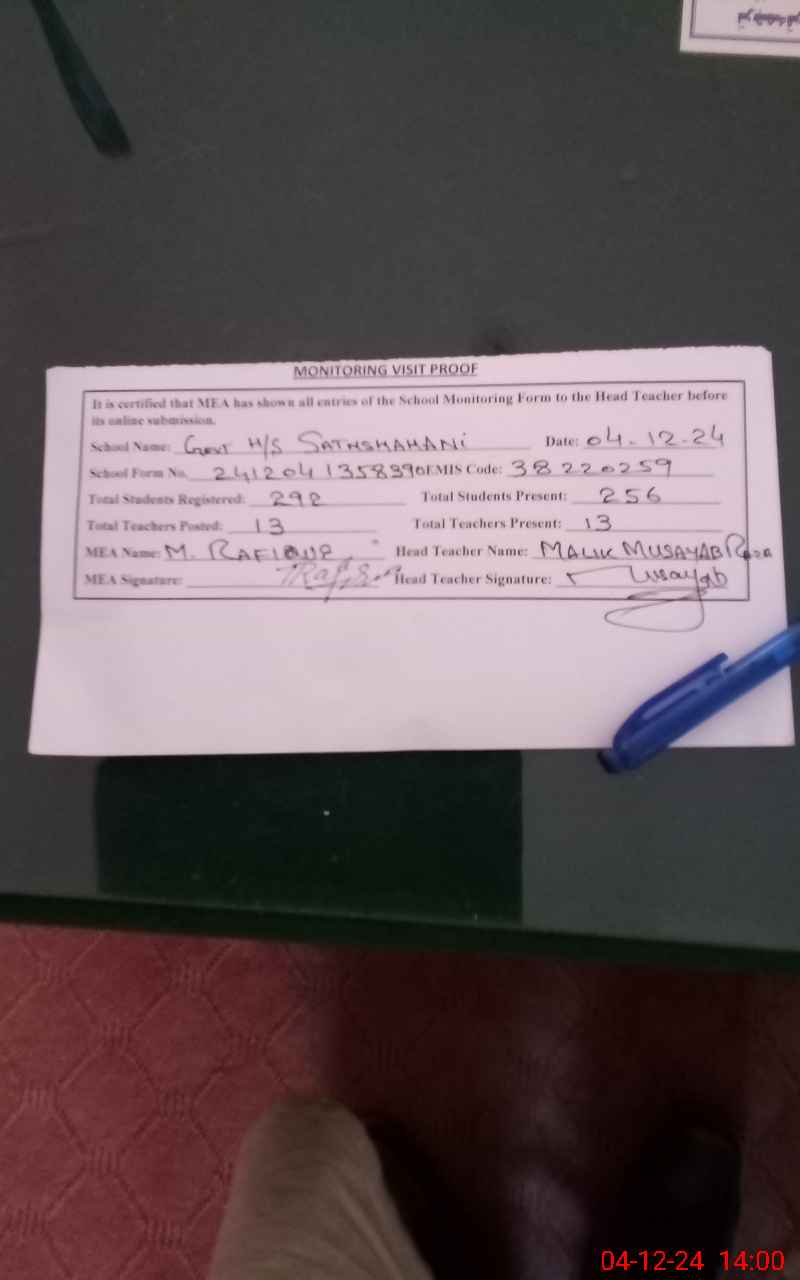 MONITORING VISIT PROOF
It is certified that MEA has shown all entries of the School Monitoring Form to the Head Teacher before
its online submission.
School Name: Govt H/S SATHSHAHANi Date: 04-12-24
School Form No. 2412041358390 EMIS Code: 38220259
Total Students Registered: 292 Total Students Present: 256
Total Teachers Posted: 13 Total Teachers Present: 13
MEA Name: M. RAFIQUE Head Teacher Name: MALIK MUSAYAB Raza
MEA Signature: Head Teacher Signature: Musayab
04-12-24 14:00